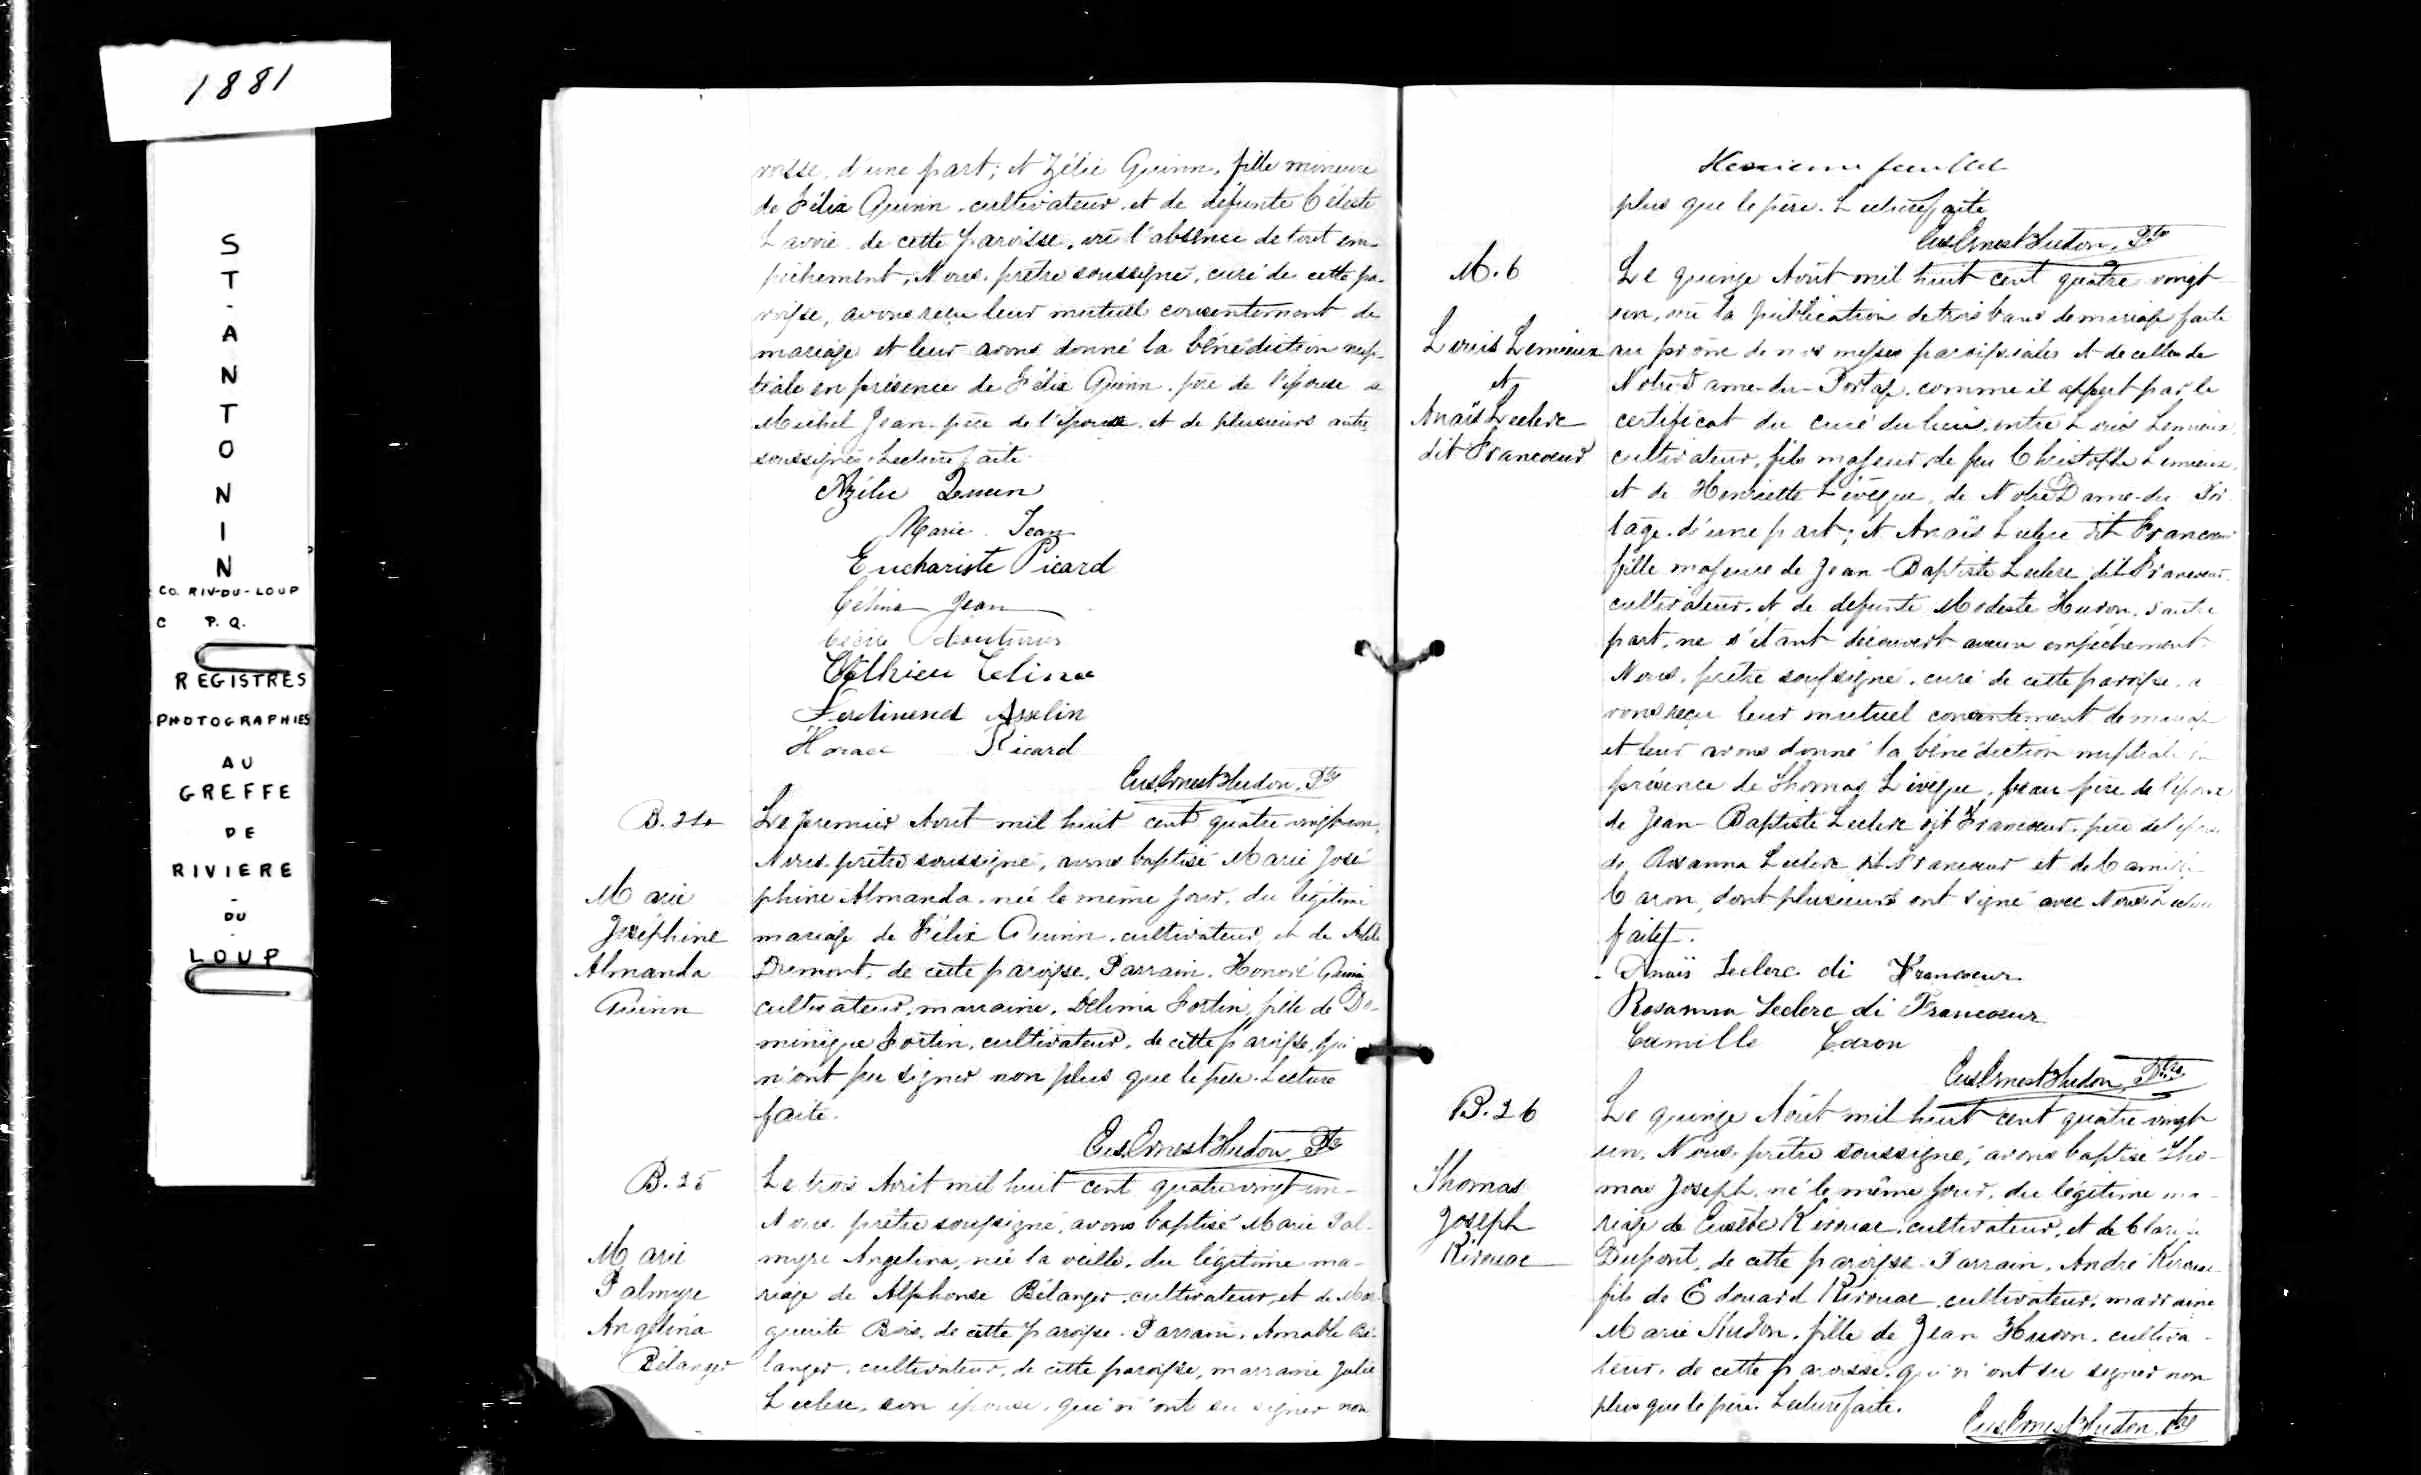 1881
ST-ANTONIN
CO. RIV-DU-LOUP
C P.Q.
REGISTRES
PHOTOGRAPHIES
AU
GREFFE
DE
RIVIERE
-
DU
-
LOUP
roisse, d'une part; et Zélie Quinn, fille mineure
de Félix Quinn, cultivateur et de défunte Céleste
Lavoie de cette paroisse, vu l'absence de tout em-
pêchement, Nous, prêtre soussigné, curé de cette pa-
roisse, avons reçu leur mutuel consentement de
mariage et leur avons donné la bénédiction nup-
tiale en présence de Félix Quinn, père de l'épouse
Michel Jean, père de l'époux et de plusieurs autres
soussignés. Lecture faite.
Azélie Quinn
Marie Jean
Euchariste Picard
Célina Jean
Mathieu Celina
Ferdinend Asselin
Horace Picard
Eus. Ernest Hudon, Ptre
B. 24
Marie
Joséphine
Almanda
Quinn
Le premier Aout mil huit cent quatre vingt-un,
Nous, prêtre soussigné, avons baptisé Marie José-
phine Almanda, née le même jour, du légitime
mariage de Félix Quinn, cultivateur, et de Adèle
Dumont, de cette paroisse. Parrain, Honoré Quinn
cultivateur, marraine, Délima Fortin, fille de Do-
minique Fortin, cultivateur, de cette paroisse, qui
n'ont pu signer non plus que le père. Lecture
faite.
Eus. Ernest Hudon, Ptre
B. 25
Marie
Palmyre
Angélina
Bélanger
Le trois Août mil huit cent quatre vingt un-
Nous, prêtre soussigné, avons baptisé Marie Pal-
myre Angelina, née la veille, du légitime ma-
riage de Alphonse Bélanger, cultivateur, et de Mar-
guerite Bois, de cette paroisse. Parrain, Amable Bé-
langer, cultivateur, de cette paroisse, marraine Julie
Leclerc, son épouse, qui n'ont su signer non
feuillet
plus que le père. Lecture faite
Eus. Ernest Hudon, Ptre
M. 6
Louis Lemieux
et
Anaïs Leclerc
dit Francoeur
Le quinze Août mil huit cent quatre vingt
un, vu la publication de trois bans de mariage faite
au prône de nos messes paroissiales et de celles de
Notre-Dame-du-Portage, comme il appert par le
certificat du curé du lieu, entre Louis Lemieux,
cultivateur, fils majeur de feu Christophe Lemieux,
et de Henriette Lévêque, de Notre Dame-du Por-
tage, d'une part; et Anaïs Leclerc dit Francoeur
fille majeure de Jean-Baptiste Leclerc dit Francoeur,
cultivateur, et de défunte Modeste Hudon, d'autre
part, ne s'étant découvert aucun empêchement
Nous, prêtre soussigné, curé de cette paroisse, a-
vons reçu leur mutuel consentement de mariage
et leur avons donné la bénédiction nuptiale en
présence de Thomas Lévêque, beau père de l'époux
de Jean-Baptiste Leclerc dit Francoeur, père de l'épouse
de Rosanna Leclerc dit Francoeur et de Camille
Caron, dont plusieurs ont signé avec Nous. Lecture
faite.
Anaïs Leclerc di Francoeur
Rosanna Leclerc di Francoeur
Camille Caron
Eus. Ernest Hudon, Ptre
B. 26
Thomas
Joseph
Kirouac
Le quinze Août mil huit cent quatre vingt
un, Nous, prêtre soussigné, avons baptisé Tho-
mas Joseph, né le même jour, du légitime ma-
riage de Eusèbe Kirouac, cultivateur, et de
Dupont, de cette paroisse. Parrain, André Kirouac
fils de Edouard Kirouac, cultivateur, marraine
Marie Hudon, fille de Jean Hudon, cultiva-
teur, de cette paroisse, qui n'ont su signer non
plus que le père. Lecture faite.
Eus. Ernest Hudon, Ptre